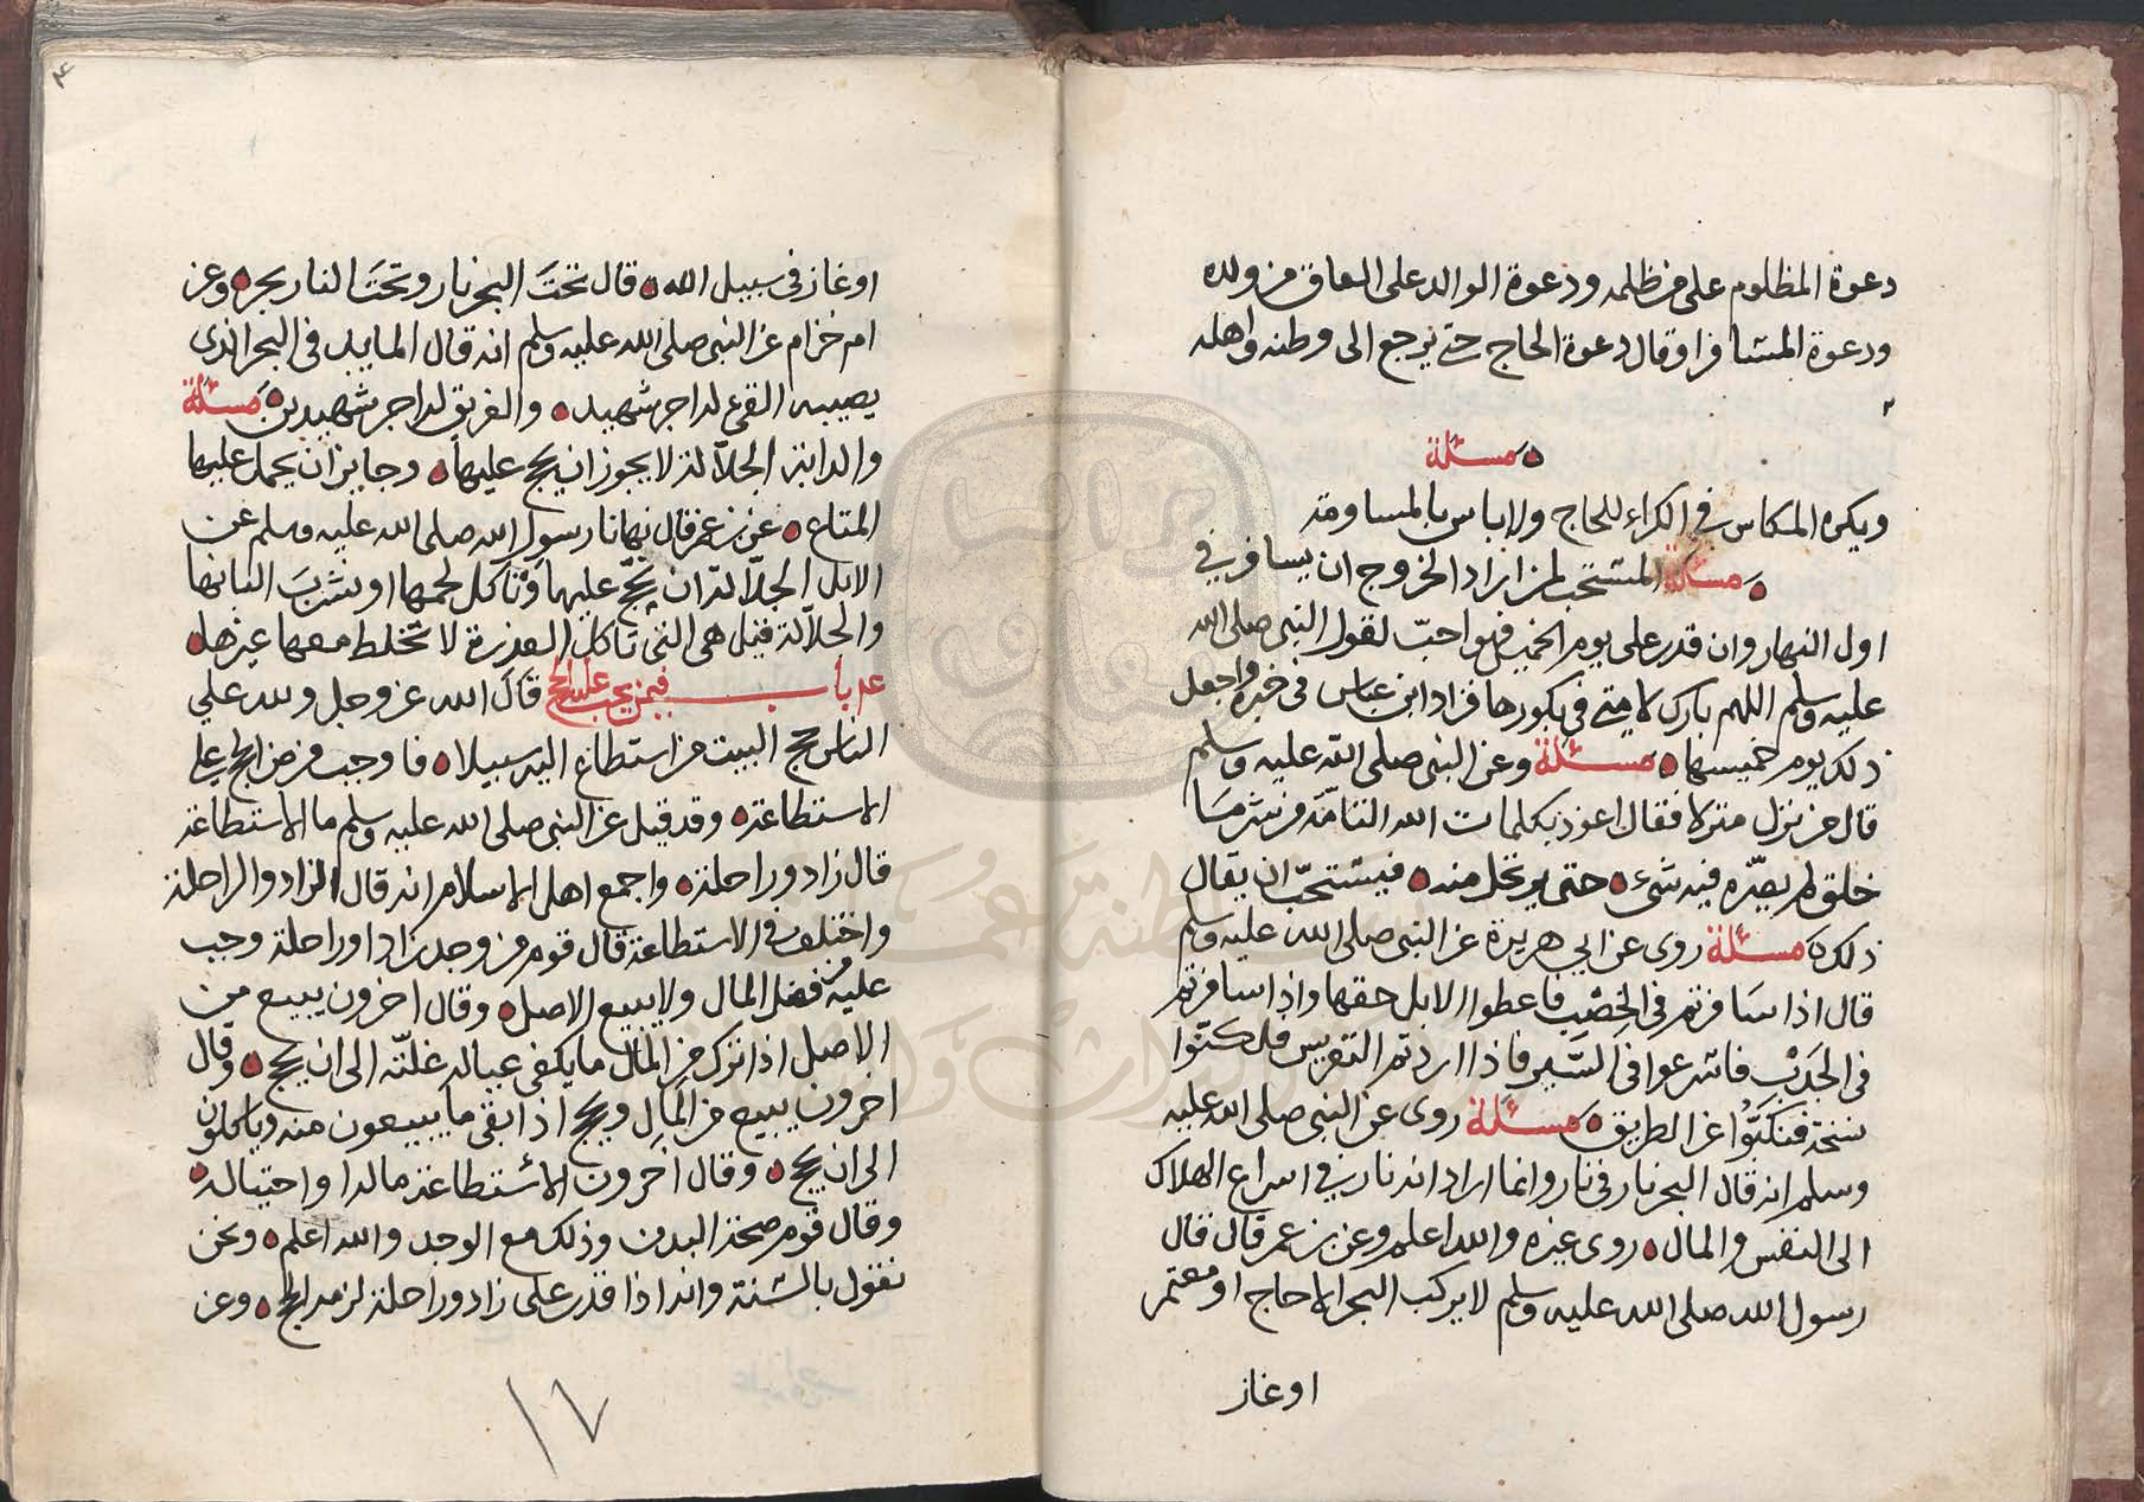 دعوة المظلوم على من ظلمه ودعوة الوالد على العاق من ولده
ودعوة المسافر او قال دعوة الحاج حتى يرجع الى وطنه واهله
مسئلة
ويكره المكاس في الكراء للحاج ولا باس بالمساومة
مسئلة المستحب لمن اراد الخروج ان يسافر في
اول النهار وان قدر على يوم الخميس فهو احبّ لقول النبي صلى الله
عليه وسلم اللهم بارك لامتي في بكورها فزاد ابن عباس في خبره واجعل
ذلك يوم خميسها مسئلة وعن النبي صلى الله عليه وسلم
قال من نزل منزلا فقال اعوذ بكلمات الله التامّة من شر مَا
خلق لم يضرّه فيه شيء حتى يرتحل منه فيستحبّ ان يقال
ذلك مسئلة روى عن ابي هريرة عن النبي صلى الله عليه وسلم
قال اذا سَافرتم في الخِصْبِ فاعطوا الابل حقها واذا سافرتم
في الجَدْبِ فاسرعوا في السَّير فاذا اردتم التعريس
فتنكبّوُا عن الطريق مسئلة روى عن النبي صلى الله عليه
وسلم انه قال البحر نار في نار وانما اراد انه نار في اسراع الهلاك
الى النفس والمال روى غيره والله اعلم وعن بن عمر قال قال
رسول الله صلى الله عليه وسلم لا يركب البحر الا حاج او معتمر
او غاز
٤
او غاز في سبيل الله قال تحتَ البحر نار وتحتَ النار بحر وعن
ام خزام عن النبي صلى الله عليه وسلم انه قال المايد في البحر الذي
يصيبه القيء له اجر شهيد والغريق له اجر شهيدين مسئلة
والدابة الجلاّلة لا يجوز ان يحج عليها وجايز ان يحمل عليها
المتاع عن بن عمر قال نهانا رسول الله صلى الله عليه وسلم عن
الابل الجلاّلة ان يحجّ عليها وتاكل لحمها او نشربَ البانها
والجلاّلة قيل هى التى تاكل العذرة لا تخلط معها غيرها
باب فيمن يجب عليه الحج قال الله عز وجل ولله على
الناس حج البيت من استطاع اليه سبيلا فاوجب فرض الحج على
الاستطاعة وقد قيل عن النبي صلى الله عليه وسلم ما الاستطاعة
قال زاد وراحلة واجمع اهل الاسلام انه قال الزاد والراحلة
واختلف في الاستطاعة قال قوم من وجد زادا وراحلة وجب
عليه من فضل المال ولا يبيع الاصل وقال اخرون يبيع من
الاصل اذا ترك من المال ما يكفي عياله غلّته الى ان يحج وقال
اخرون يبيع من المال ويحج اذا بقي ما يبيعون منه وياكلون
الى ان يحج وقال اخرون الاستطاعة ماله او احتياله
وقال قوم صحة البدن وذلك مع الوجد والله اعلم ونحن
نقول بالسنة وانه اذا قدر على زاد وراحلة لزمه الحج وعن
١٧